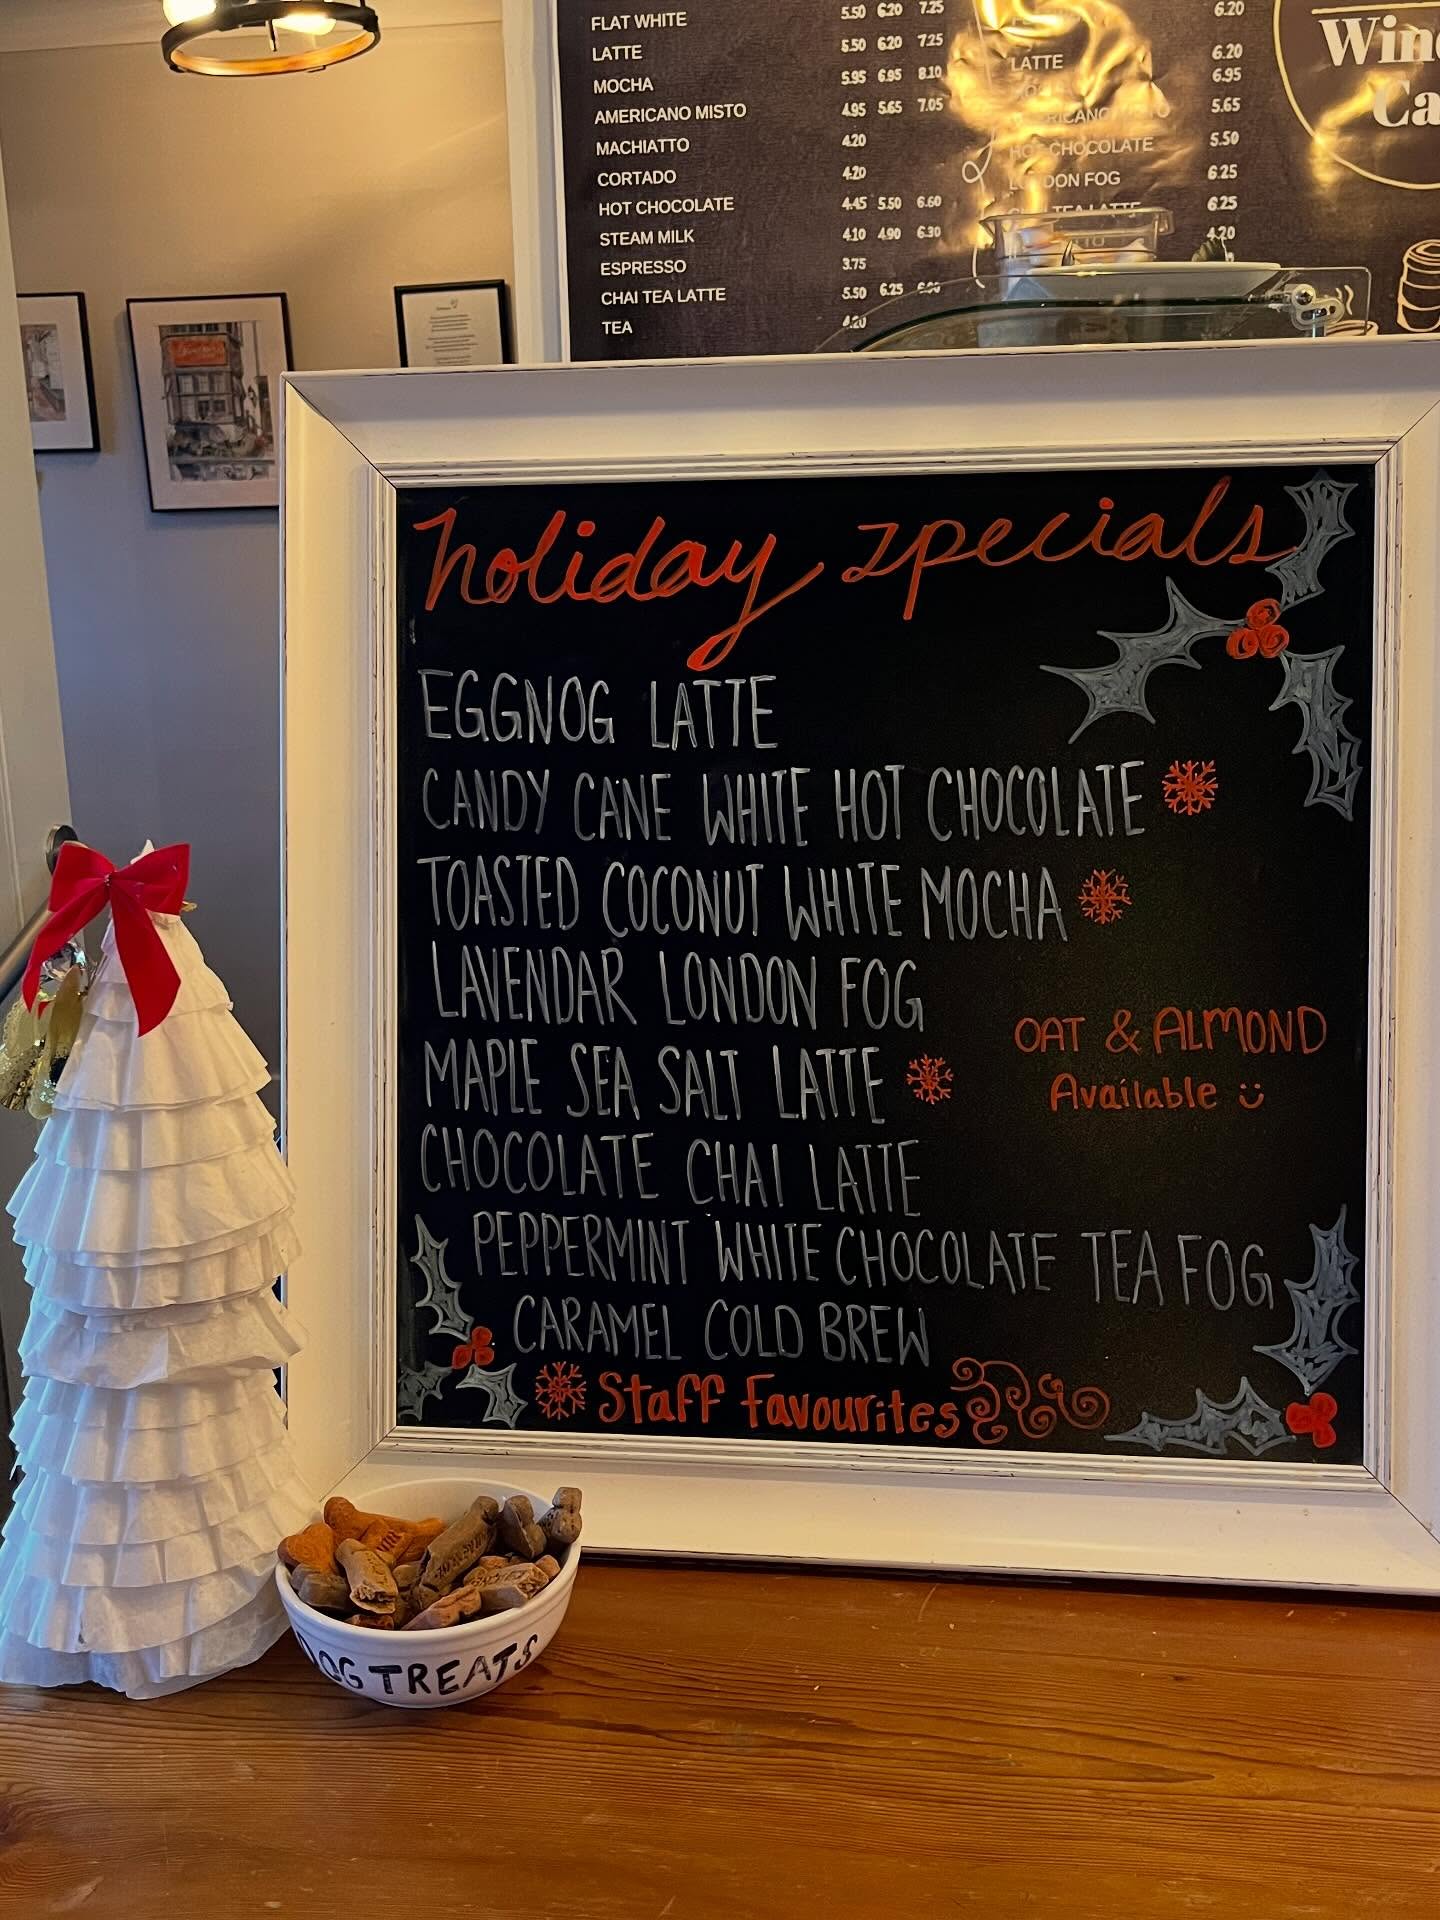 FLAT WHITE 5.50 6.20 7.25
LATTE 5.50 6.20 7.25
MOCHA 5.95 6.95 8.10
AMERICANO MISTO 4.95 5.65 7.05
MACHIATTO 4.20
CORTADO 4.20
HOT CHOCOLATE 4.45 5.50 6.60
STEAM MILK 4.10 4.90 6.30
ESPRESSO 3.75
CHAI TEA LATTE 5.50 6.25
TEA 4.20
6.20
LATTE 6.20
6.95
5.65
HOT CHOCOLATE 5.50
LONDON FOG 6.25
CHAI TEA LATTE 6.25
4.20
holiday specials
EGGNOG LATTE
CANDY CANE WHITE HOT CHOCOLATE
TOASTED COCONUT WHITE MOCHA
LAVENDAR LONDON FOG
MAPLE SEA SALT LATTE
CHOCOLATE CHAI LATTE
PEPPERMINT WHITE CHOCOLATE TEA FOG
CARAMEL COLD BREW
Staff Favourites
OAT & ALMOND
Available
DOG TREATS